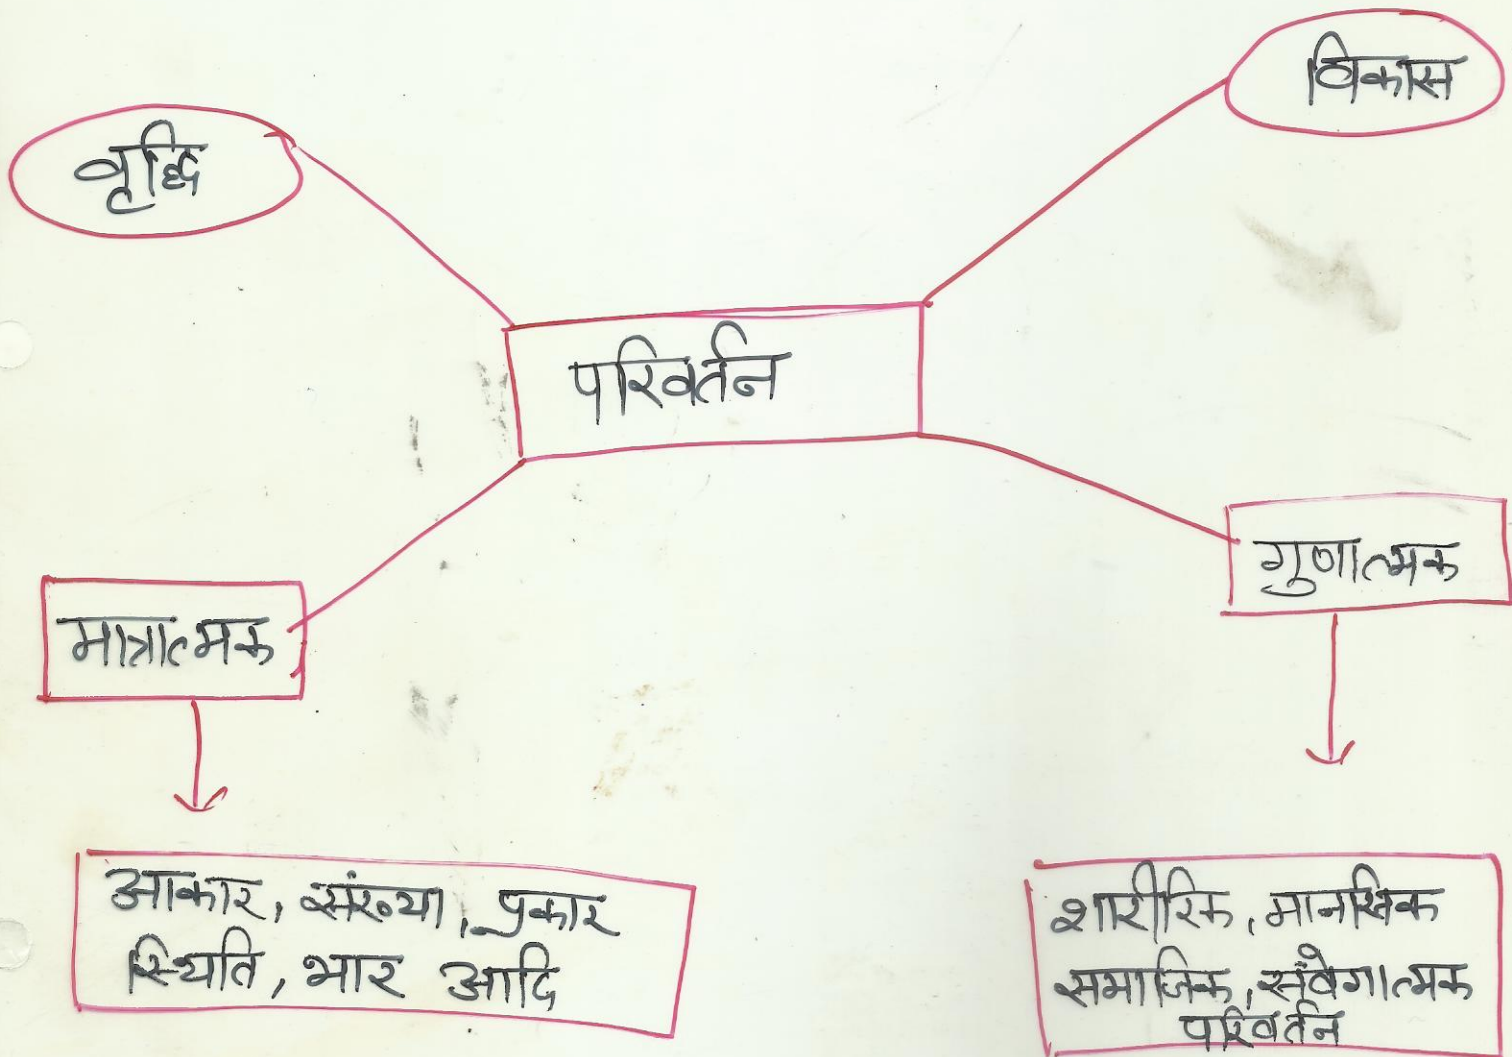 विकास
वृद्धि
परिवर्तन
गुणात्मक
मात्रात्मक
आकार, संख्या, प्रकार
स्थिति, भार आदि
शारीरिक, मानसिक
समाजिक, संवेगात्मक
परिवर्तन